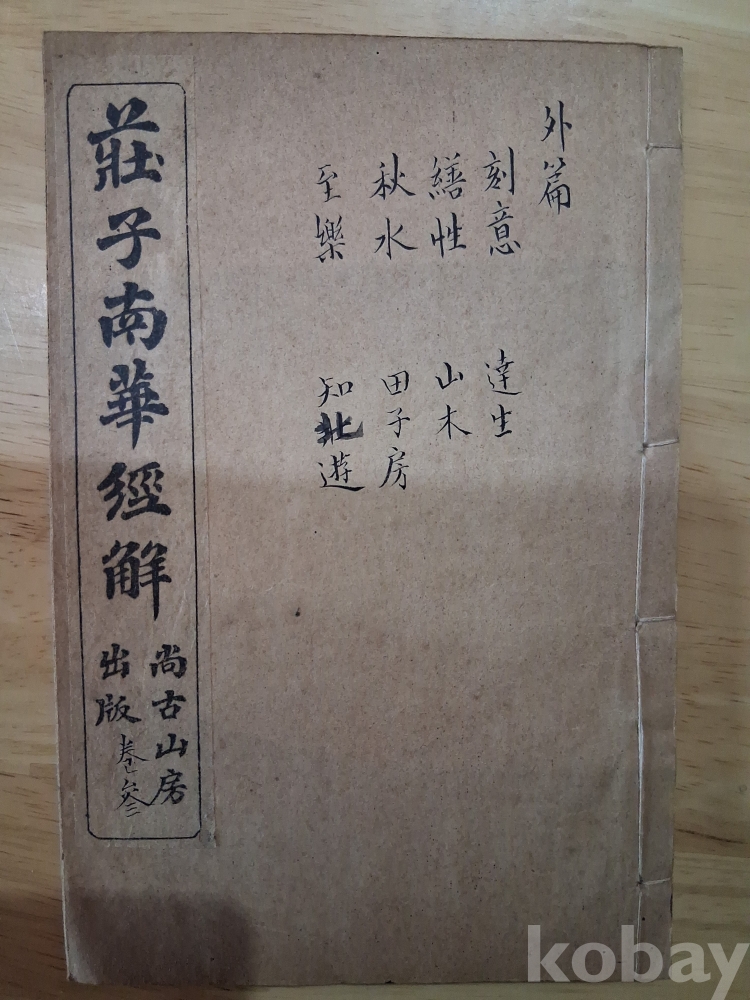 外篇
刻意
繕性
秋水
至樂
達生
山木
田子房
知北遊
莊子南華經解
尚古山房
出版
卷叁
kobay